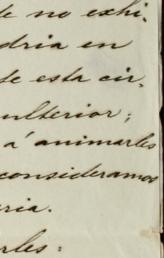 de no exhi-
dria en
de esta cir-
ulterior;
á animarles
consideramos
eria.
rles: